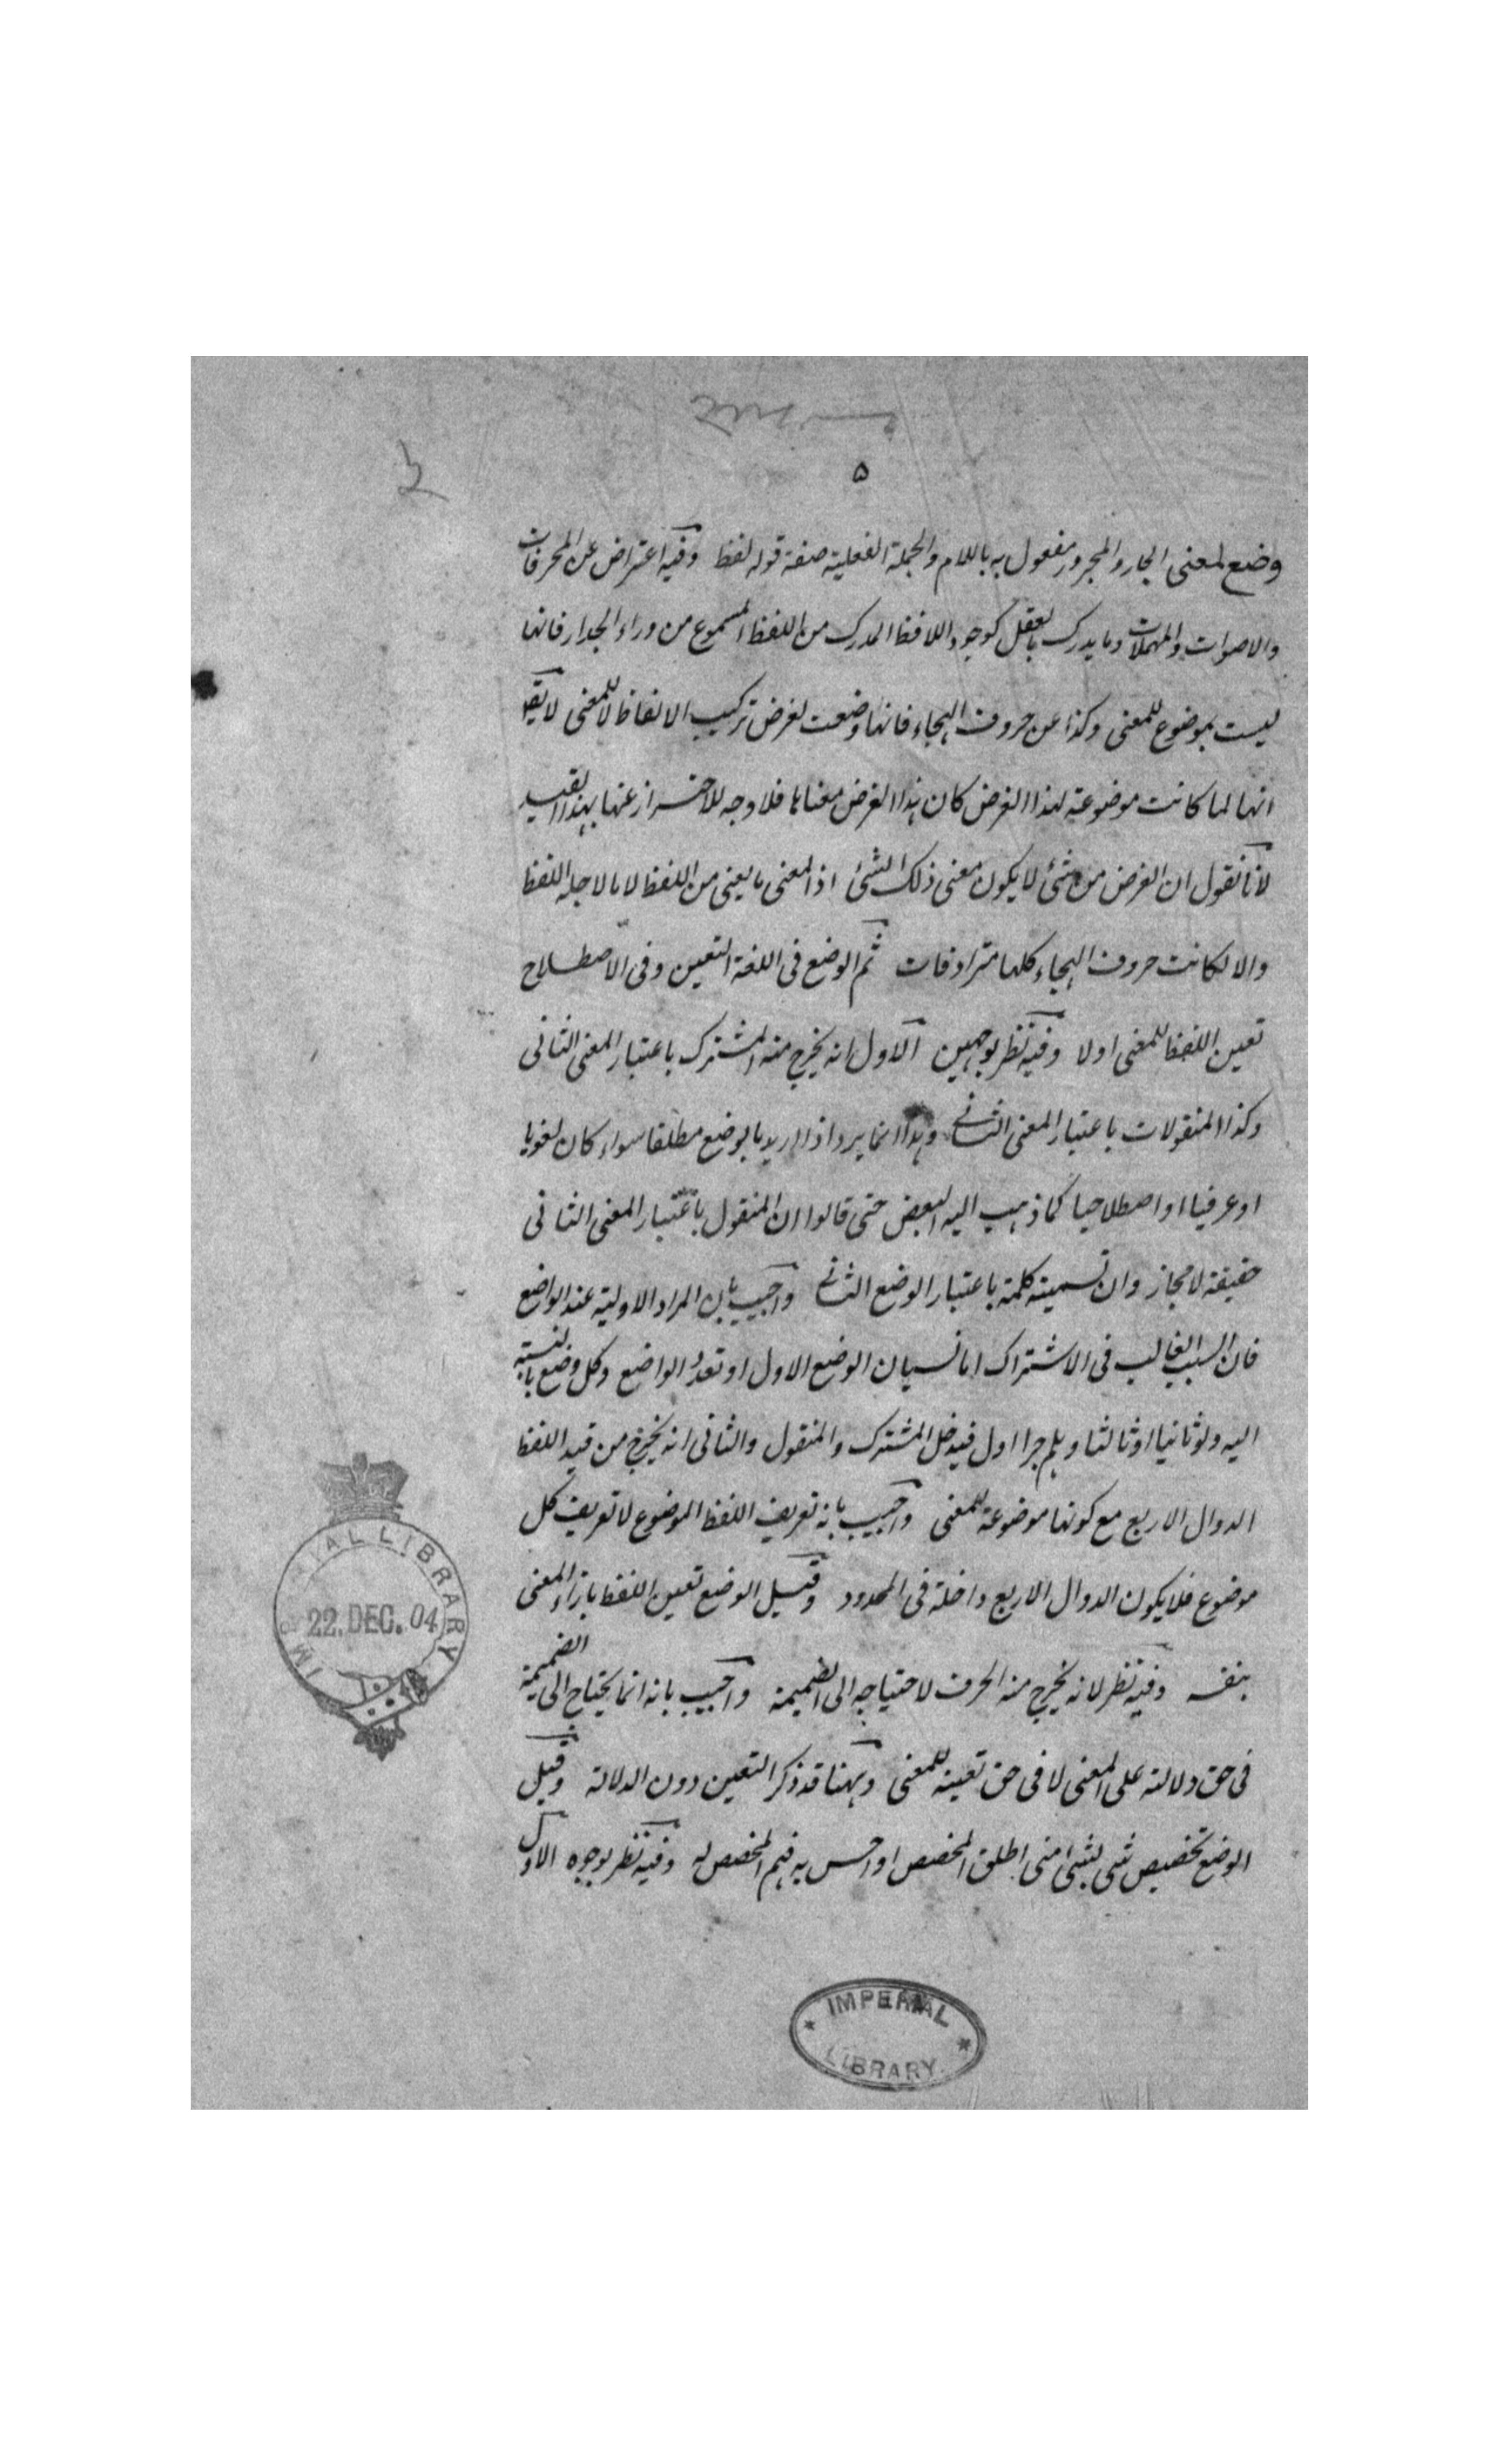 ۵
وضع لمعنى الجار والمجرور مفعول به باللام والجملة الفعلية صفة قوله لفظ وفيه اعتراض عن المحرفات
والاصوات والمهملات وما يدرك بالعقل كوجود اللافظ المدرك من اللفظ المسموع من وراء الجدار فانها
ليست بموضوع للمعنى وكذا عن حروف الهجاء فانها وضعت لغرض تركيب الالفاظ لا للمعنى لا يقا
انها لما كانت موضوعة لهذا الغرض كان هذا الغرض معناها فلا وجه للاحتراز عنها بهذا القيد
لانا نقول ان الغرض من شئ لا يكون معنى ذلك الشئ اذ المعنى ما يعنى من اللفظ لا ما لاجله اللفظ
والا لكانت حروف الهجاء كلها مترادفات ثم الوضع فى اللغة التعيين وفى الاصطلاح
تعيين اللفظ للمعنى اولا وفيه نظر بوجهين الاول انه يخرج منه المشترك باعتبار المعنى الثانى
وكذا المنقولات باعتبار المعنى الثانى وهذا انما يرد اذا اريد بالوضع مطلقا سواء كان لغويا
او عرفيا او اصطلاحيا كما ذهب اليه البعض حتى قالوا ان المنقول باعتبار المعنى الثانى
حقيقة لا مجاز وان تسميته كلمة باعتبار الوضع الثانى واجيب بان المراد الاولية عند الواضع
فان السبب الغالب فى الاشتراك اما نسيان الوضع الاول او تعدد الواضع وكل وضع بالنسبة
اليه ولو ثانيا او ثالثا وهلم جرا اول فيدخل المشترك والمنقول والثانى انه يخرج من قيد اللفظ
الدوال الاربع مع كونها موضوعة للمعنى واجيب بانه تعريف اللفظ الموضوع لا تعريف كل
موضوع فلا يكون الدوال الاربع داخلة فى المحدود وقيل الوضع تعيين اللفظ بازاء المعنى
بنفسه وفيه نظر لانه يخرج منه الحرف لاحتياجه الى الضميمة واجيب بانه انما يحتاج الى الضميمة
فى حق دلالته على المعنى لا فى حق تعيينه للمعنى وههنا قد ذكر التعيين دون الدلالة وقيل
الوضع تخصيص شى بشئ متى اطلق المخصص او احس به فهم المخصص له وفيه نظر بوجوه الاول
IMPERIAL LIBRARY
22. DEC. 04
IMPERIAL
LIBRARY